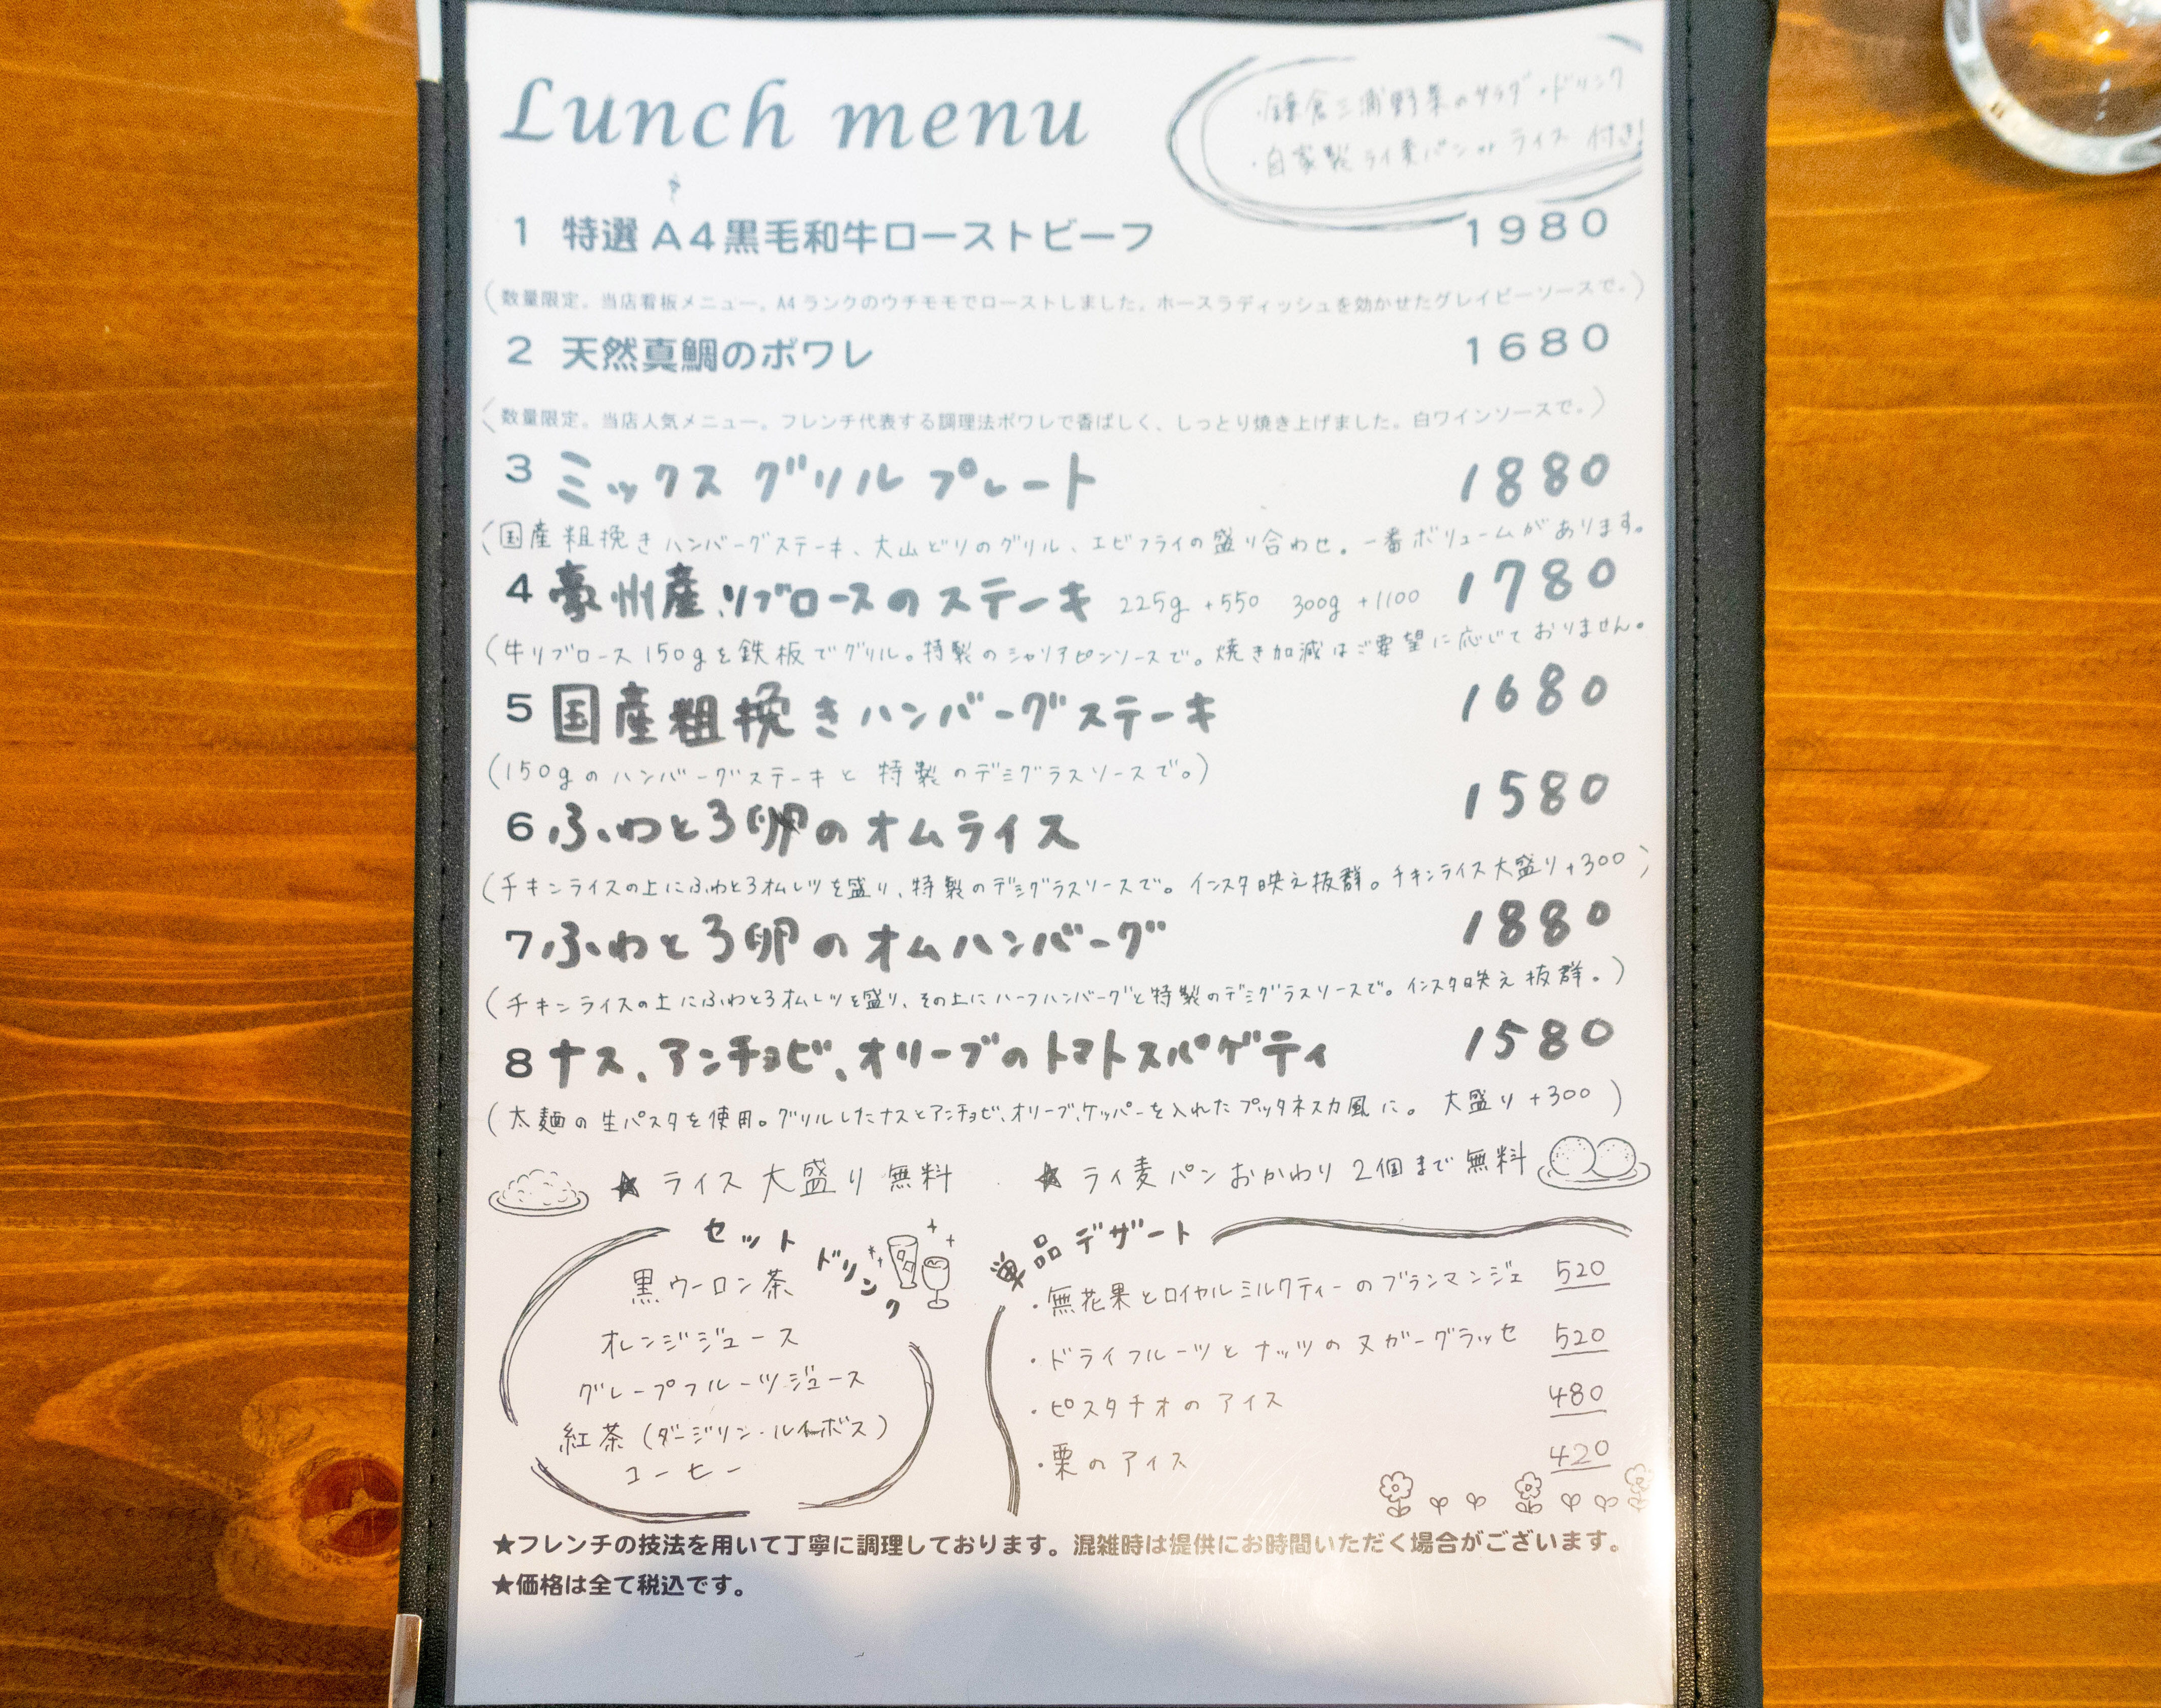 Lunch menu
・鎌倉三浦野菜のサラダ・ドリンク
・自家製ライ麦パン or ライス 付き!
1 特選A4黒毛和牛ローストビーフ 1980
(数量限定。当店看板メニュー。A4ランクのウチモモでローストしました。ホースラディッシュを効かせたグレイビーソースで。)
2 天然真鯛のポワレ 1680
(数量限定。当店人気メニュー。フレンチ代表する調理法ポワレで香ばしく、しっとり焼き上げました。白ワインソースで。)
3 ミックスグリルプレート 1880
(国産粗挽きハンバーグステーキ、大山どりのグリル、エビフライの盛り合わせ。一番ボリュームがあります。
4 豪州産リブロースのステーキ 225g +550 300g +1100 1780
(牛リブロース150gを鉄板でグリル。特製のシャリアピンソースで。焼き加減はご要望に応じておりません。
5 国産粗挽きハンバーグステーキ 1680
(150gのハンバーグステーキと特製のデミグラスソースで。)
6 ふわとろ卵のオムライス 1580
(チキンライスの上にふわとろオムレツを盛り、特製のデミグラスソースで。インスタ映え抜群。チキンライス大盛り+300)
7 ふわとろ卵のオムハンバーグ 1880
(チキンライスの上にふわとろオムレツを盛り、その上にハーフハンバーグと特製のデミグラスソースで。インスタ映え抜群。)
8 ナス、アンチョビ、オリーブのトマトスパゲティ 1580
(太麺の生パスタを使用。グリルしたナスとアンチョビ、オリーブ、ケッパーを入れたプッタネスカ風に。大盛り+300)
★ライス大盛り無料 ★ライ麦パンおかわり2個まで無料
セットドリンク
黒ウーロン茶
オレンジジュース
グレープフルーツジュース
紅茶(ダージリン・ルイボス)
コーヒー
単品デザート
・無花果とロイヤルミルクティーのブランマンジェ 520
・ドライフルーツとナッツのヌガーグラッセ 520
・ピスタチオのアイス 480
・栗のアイス 420
★フレンチの技法を用いて丁寧に調理しております。混雑時は提供にお時間いただく場合がございます。
★価格は全て税込です。